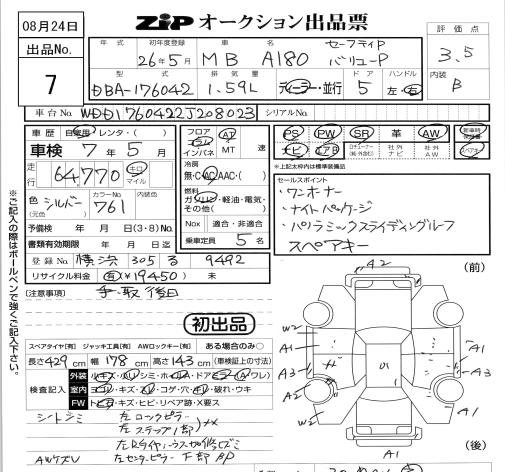 08月24日
出品No.
7
ZIP オークション出品票
評価点
3.5
内装
B
年式 初年度登録 車名
26年5月 MB A180 セーフティP バリューP
型式 排気量 ドア ハンドル
DBA-176042 1.59L ディーラー・並行 5 左・右
車台No. WDD1760422J208023 シリアルNo.
車歴 自家用・レンタ・( )
フロア コラム インパネ AT MT 速
PS PW SR 革 AW 新車時保証書
ナビ エアB 社外ナビ 社外AW スペアキー
※上記太枠内は標準装備品
車検 7年5月
冷房
無・C・AC・AAC・( )
走行 64,770 キロ マイル
燃料
ガソリン・軽油・電気・その他( )
セールスポイント
・ワンオーナー
・ナイトパッケージ
・パノラミックスライディングルーフ
スペアキー
色 シルバー カラーNo. 761 内装色
(元色)
予備検 年 月 日(3・8)No.
Nox 適合・非適合
書類有効期限 年 月 日迄
乗車定員 5名
登録No. 横浜 305 る 9492
リサイクル料金 有(¥19450) 未
(注意事項)
初出品
※ご記入の際はボールペンで強くご記入下さい。
スペアタイヤ[有] ジャッキ工具[有] AWロックキー[有] ある場合のみ○
長さ429cm 幅178cm 高さ143cm (車検証上の寸法)
検査記入
外装
室内 ヨゴレ・キズ・スレ・コゲ・穴・キレ・破れ・ウキ
FW トビ石・キズ・ヒビ・リペア跡・X要ス
シートシミ
左ロックピラー
左ステップ
AWケズレ
左センターピラー下部
(前)
A2
W2
A1
A3
A2
W2
A1
A3
A1
(後)
A1